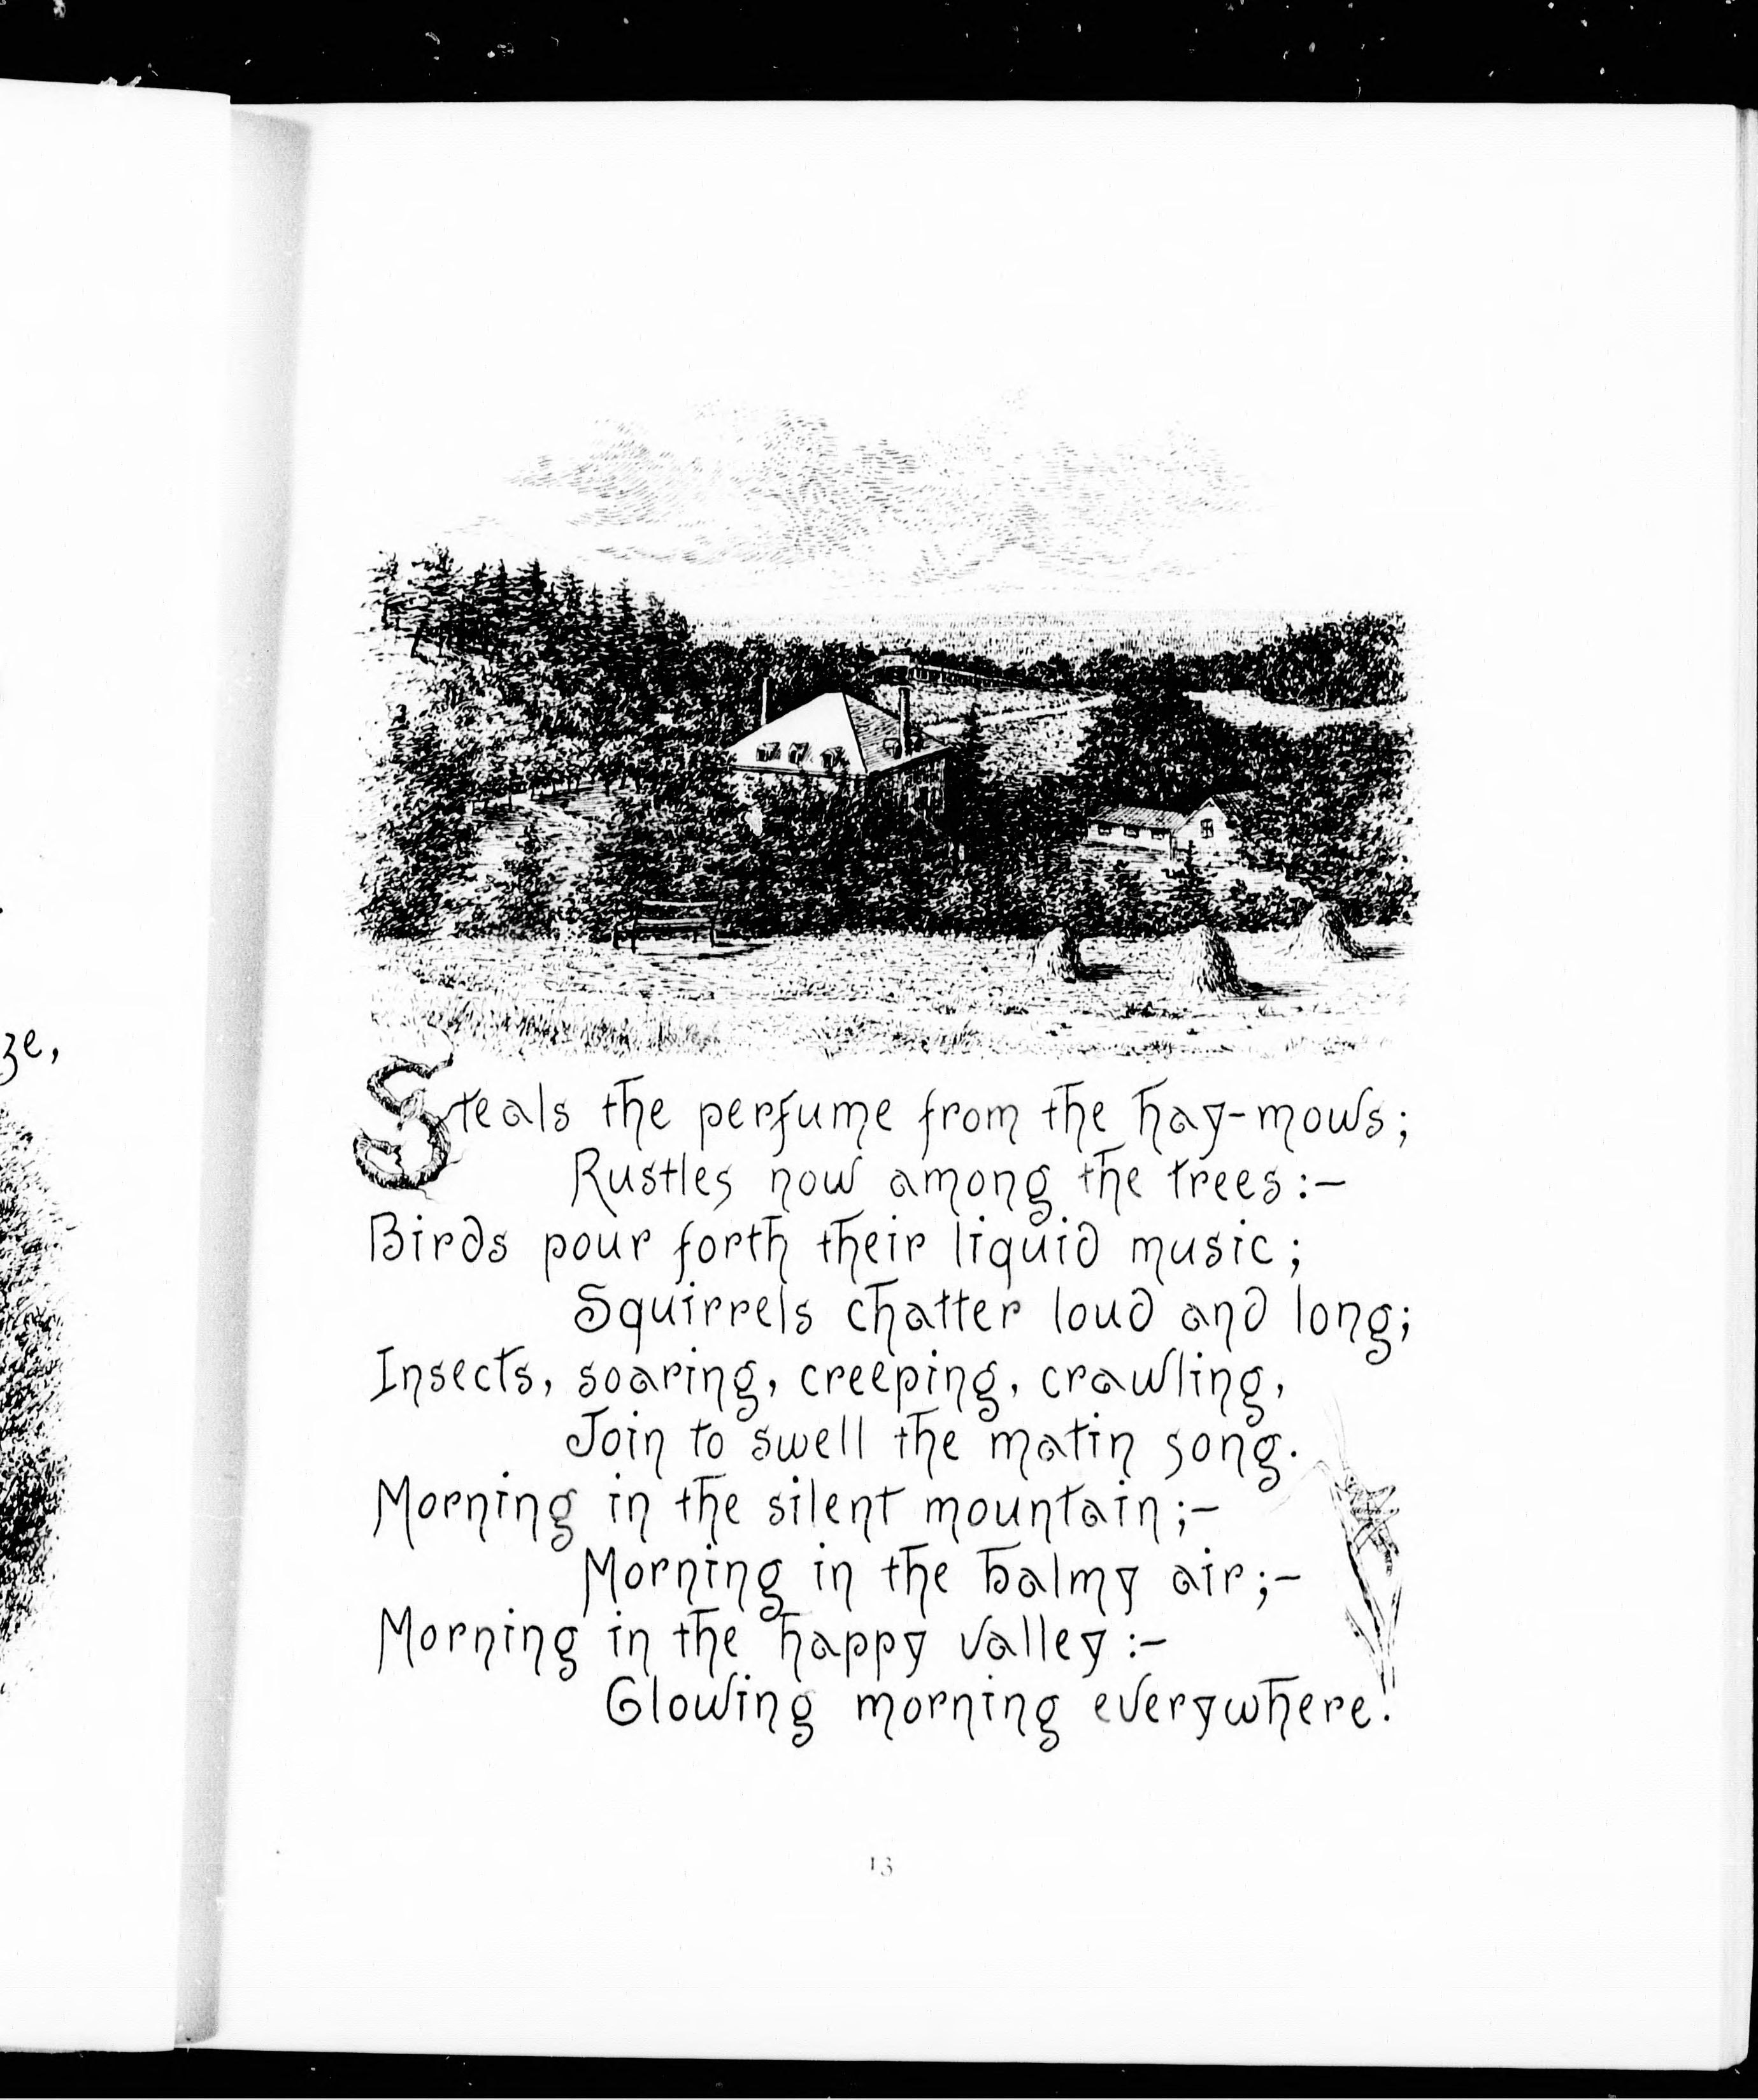 ze,
Steals the perfume from the hay-mows;
Rustles now among the trees:—
Birds pour forth their liquid music;
Squirrels chatter loud and long;
Insects, soaring, creeping, crawling,
Join to swell the matin song.
Morning in the silent mountain;—
Morning in the balmy air;—
Morning in the happy valley:—
Glowing morning everywhere!
13